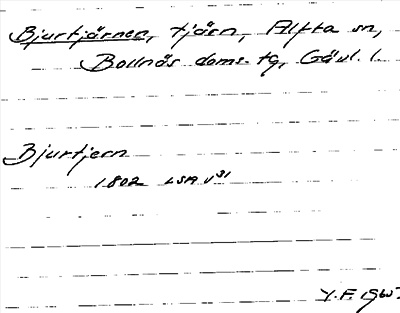 Bjurtjärnen, tjärn, Alfta sn,
Bollnäs doms. tg, Gävl. l.
Bjurtjern
1802 LSA V31
Y.F. 1960